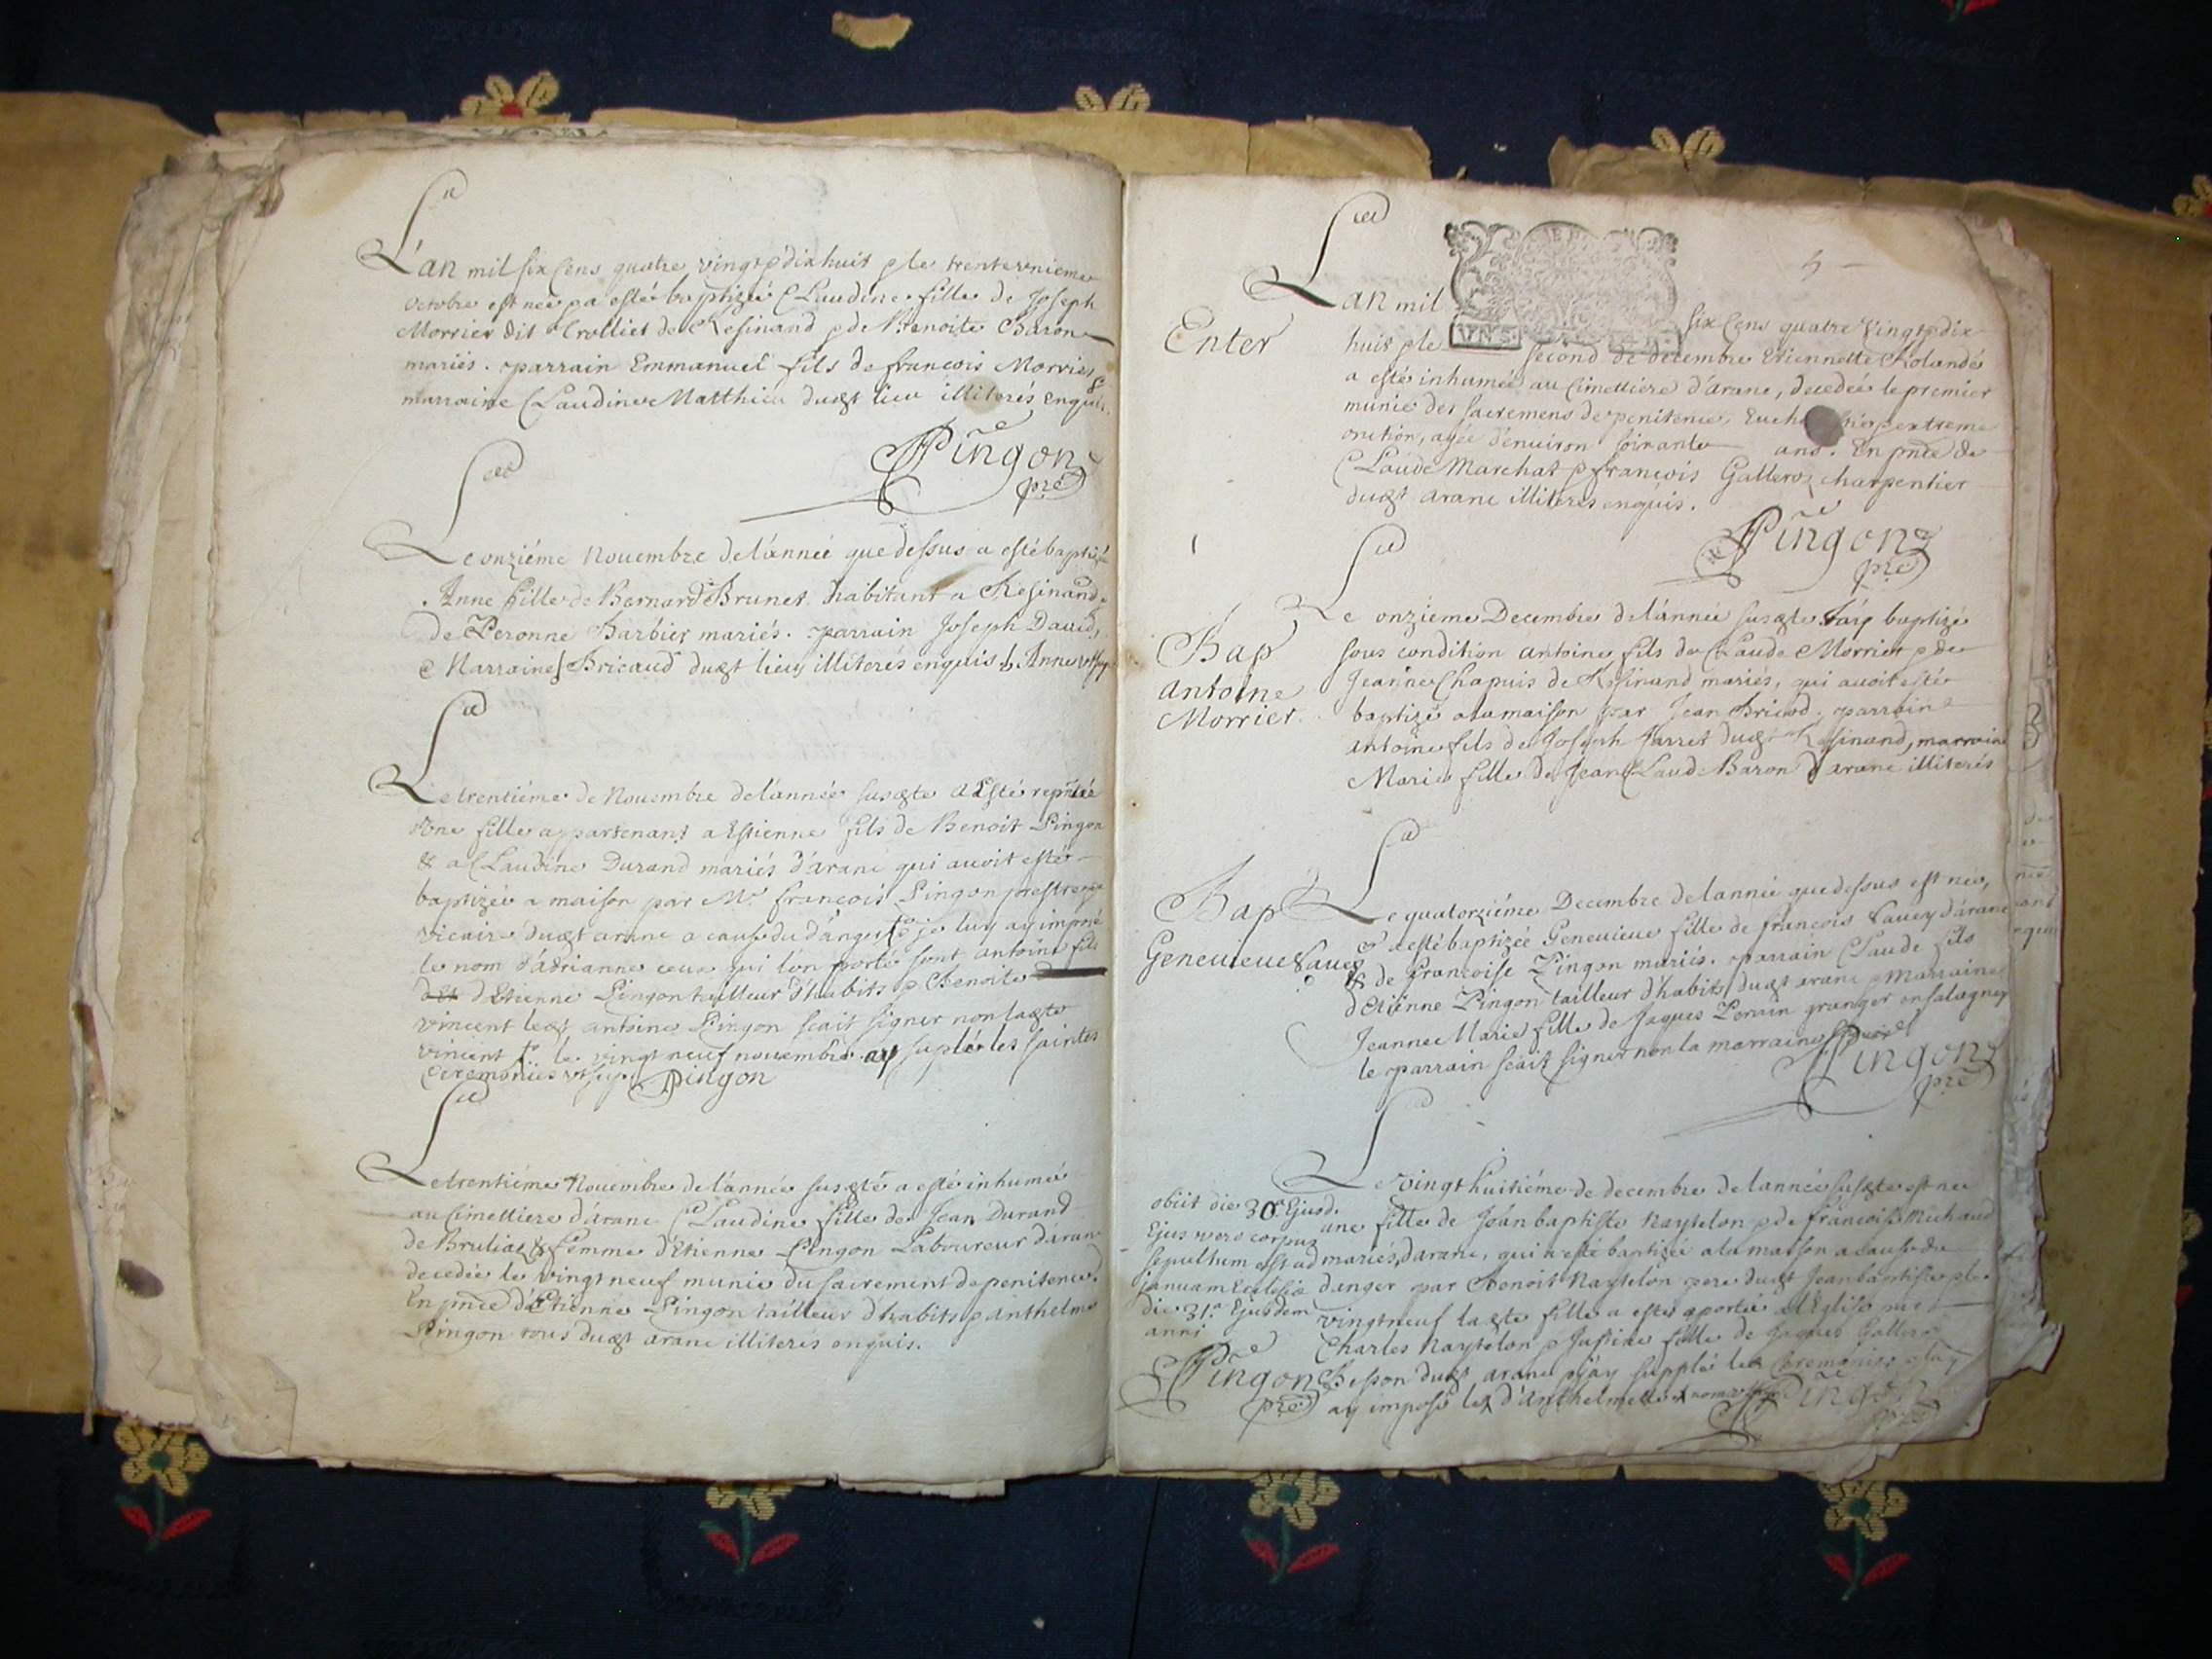 L'an mil six cens quatre vingt & dix huit & le trente unieme
octobre est neé & a esté baptizeé Claudine fille de Joseph
Morrier dit Crolliet de Resinand & de Benoite Baron
mariés. parrain Emmanuel fils de francois Morrier &
marraine Claudine Matthieu dudt lieu illiterés enquis.
Pingon
pre
Le onziéme Nouembre de l'anneé que dessus a esté baptizé
Anne fille de Bernard Brunet habitant a Resinand &
de Peronne Barbier mariés. parrain Joseph Dauid,
& Marraine Bricaud dudt lieu illiterés enquis Anne
Le trentiéme de Nouembre de l'anneé susdte a Esté
Vne fille appartenant a Estienne fils de Benoit Pingon
& a Claudine Durand mariés d'arane qui auoit esté
baptizeé a maison par Mr. francois Pingon prestre &
vicaire dudt arane a cause du danger & je luy ay imposé
le nom d'adrianne ceux qui l'on porté sont antoine fils
d'Etienne Pingon tailleur d'habits & Benoite
vincent ledt antoine Pingon scait signer non ladte
vincent le vingt neuf nouembre ay supleé les saintes
Ceremonies Pingon
Le trentiéme Nouembre de l'anneé susdte a esté inhumeé
au Cimettiere d'arane Claudine fille de Jean Durand
de Brulias & femme d'Etienne Pingon Laboureur d'arane
decedeé le vingt neuf munie du sacrement de penitence.
En pnce d'Etienne Pingon tailleur d'habits & anthelme
Pingon tous dudt arane illiterés enquis.
L'an mil six cens quatre vingt & dix
Enter
huit & le second de decembre Etiennette Rolande
a esté inhumeé au Cimettiere d'arane, decedeé le premier
munie des sacremens de penitence, Eucharistie & extreme
onction, ageé d'enuiron soixante ans. En pnce de
Claude Marchat & francois Gallero charpentier
dudt arane illiterés enquis.
Pingon
pre
Le onziéme Decembre de l'anneé susdte j'ay baptizé
Bap
antoine
Morrier
sous condition antoine fils de Claude Morrier & de
Jeanne Chapuis de Resinand mariés, qui auoit esté
baptizé a la maison par Jean Bricod. parrain
antoine fils de Joseph Jarret dudt Resinand, marraine
Marie fille de Jean Claude Baron d'arane illiterés
Bap
Geneuieue Sauey
Le quatorziéme Decembre de l'anneé que dessus est neé,
& a esté baptizeé Geneuieue fille de francois Sauey d'arane
& de francoise Pingon mariés. parrain Claude fils
d'Etienne Pingon tailleur d'habits dudt arane & Marraine
Jeanne Marie fille de Jaques Perrin granger en
le parrain scait signer non la marraine
Pingon
pre
Le vingt huitiéme de decembre de l'anneé susdte est neé
une fille de Jean baptiste Naytelon & de francoise Michaud
mariés, d'arane, qui a esté baptizeé a la maison a cause du
danger par Benoit Naytelon pere dudt Jean baptiste & le
vingt neuf ladte fille a esté aporteé a l'Eglise par
Charles Naytelon & Justine fille de Jaques Gallero
Besson dudt arane & j'ay suppleé les ceremonies & luy
ay imposé le d'Anthelmette nom
Pingon
obiit die 30a Ejusd.
Ejus vero corpus
sepultum est ad
januam Ecclesiae
die 31a Ejusdem
anni
Pingon
pre